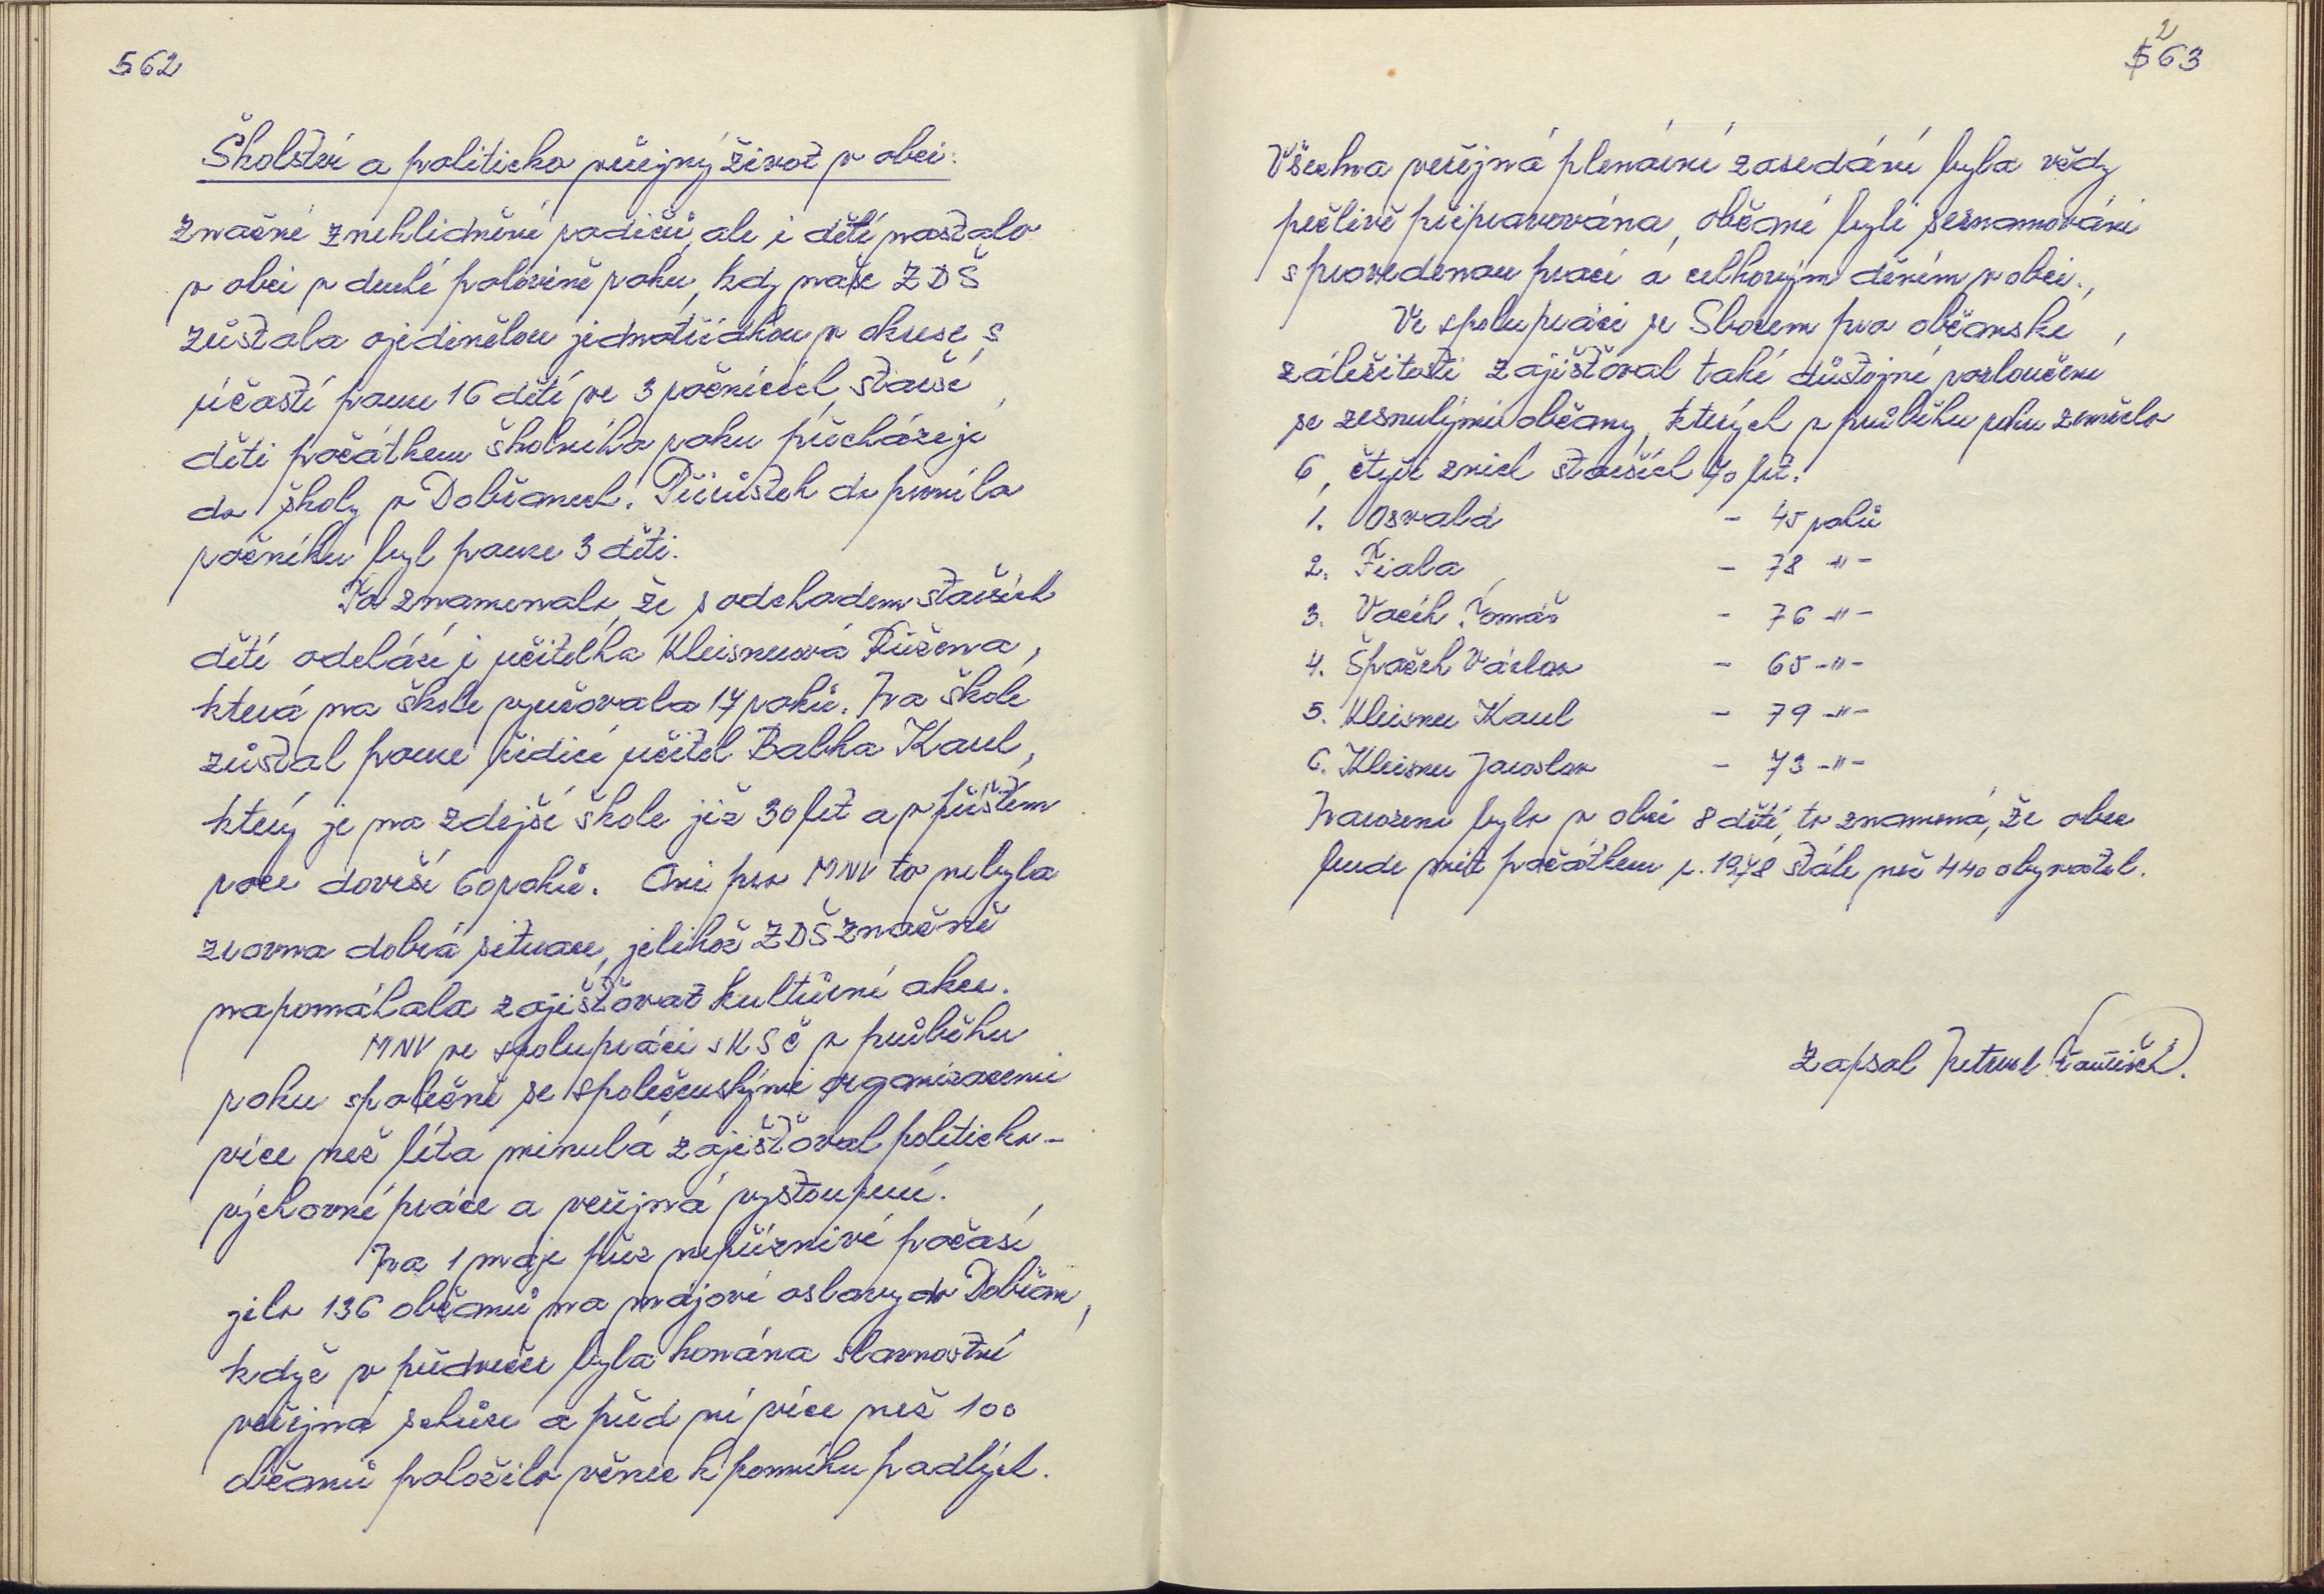 562
Školství a politicko veřejný život v obci.
Značné znehlidnění rodičů, ale i dětí nastalo
v obci v druhé polovině roku, kdy naše ZDŠ
zůstala ojedinělou jednotřídkou v okrese s
účastí pouze 16 dětí ve 3 ročnících, starší
děti počátkem školního roku přecházeje
do školy v Dobřanech. Přírůstek do prvního
ročníku byl pouze 3 děti.
To znamenalo, že s odchodem starších
dětí odchází i učitelka Kleisnerová Růžena,
která na škole vyučovala 17 roků. Na škole
zůstal pouze řídící učitel Babka Karel,
který je na zdejší škole již 30 let a v příštím
roce dovrší 60 roků. Ani pro MNV to nebyla
zrovna dobrá situace, jelikož ZDŠ značně
napomáhala zajišťovat kulturní akce.
MNV ve spolupráci s KSČ v průběhu
roku společně se společenskými organizacemi
více než léta minulá zajišťoval politicko-
výchovné práce a veřejná vystoupení.
Na 1 máje přes nepříznivé počasí
jelo 136 občanů na májové oslavy do Dobřan,
když v předvečer byla konána slavnostní
veřejná schůze a před ní více než 100
občanů položilo věnec k pomníku padlých.
2
563
Všechna veřejná plenární zasedání byla vždy
pečlivě připravována, občané byli seznamováni
s provedenou prací a celkovým děním v obci.
Ve spolupráci se Sborem pro občanské
záležitosti zajišťoval také důstojné rozloučení
se zesnulými občany, kterých v průběhu roku zemřelo
6, čtyři z nich starších 70 let.
1. Osvald - 45 roků
2. Fiala - 78 -"-
3. Vacík Tomáš - 76 -"-
4. Špaček Václav - 65 -"-
5. Kleisner Karel - 79 -"-
6. Kleisner Jaroslav - 73 -"-
Narozeno bylo v obci 8 dětí, to znamená, že obec
bude mít počátkem r. 1978 stále než 440 obyvatel.
Zapsal